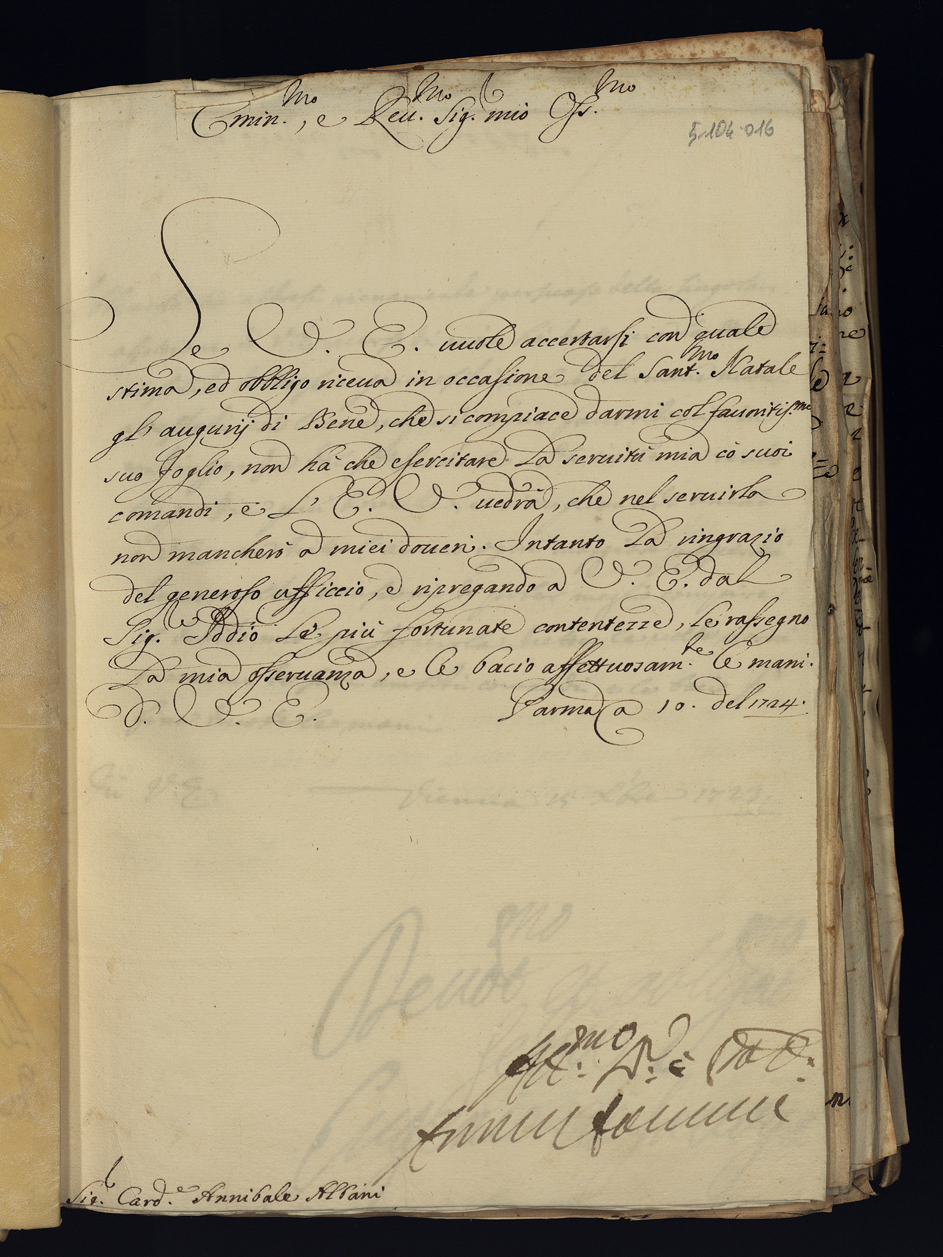 Emin.mo, e Reu.mo Sig.r mio Oss.mo
5-104-016
Se V. E. uuole accertarsi con quale
stima, ed obbligo riceua in occasione del Sant.mo Natale
gl' augurij di Bene, che si compiace darmi col fauoritis.mo
suo foglio, non hà che esercitare La seruitù mia cò suoi
comandi, e L' E. V. uedrà, che nel seruirla
non mancherò a miei doueri. Intanto La ringrazio
del generoso ufficcio, e ripregando a V. E. dal
Sig.re Iddio Le più fortunate contentezze, Le rassegno
La mia osseruanza, e le bacio affettuosam.te le mani.
D. V. E. Parma a 10. del 1724.
Aff.mo
Sig.r Card.e Annibale Albani
Vienna 15 1723